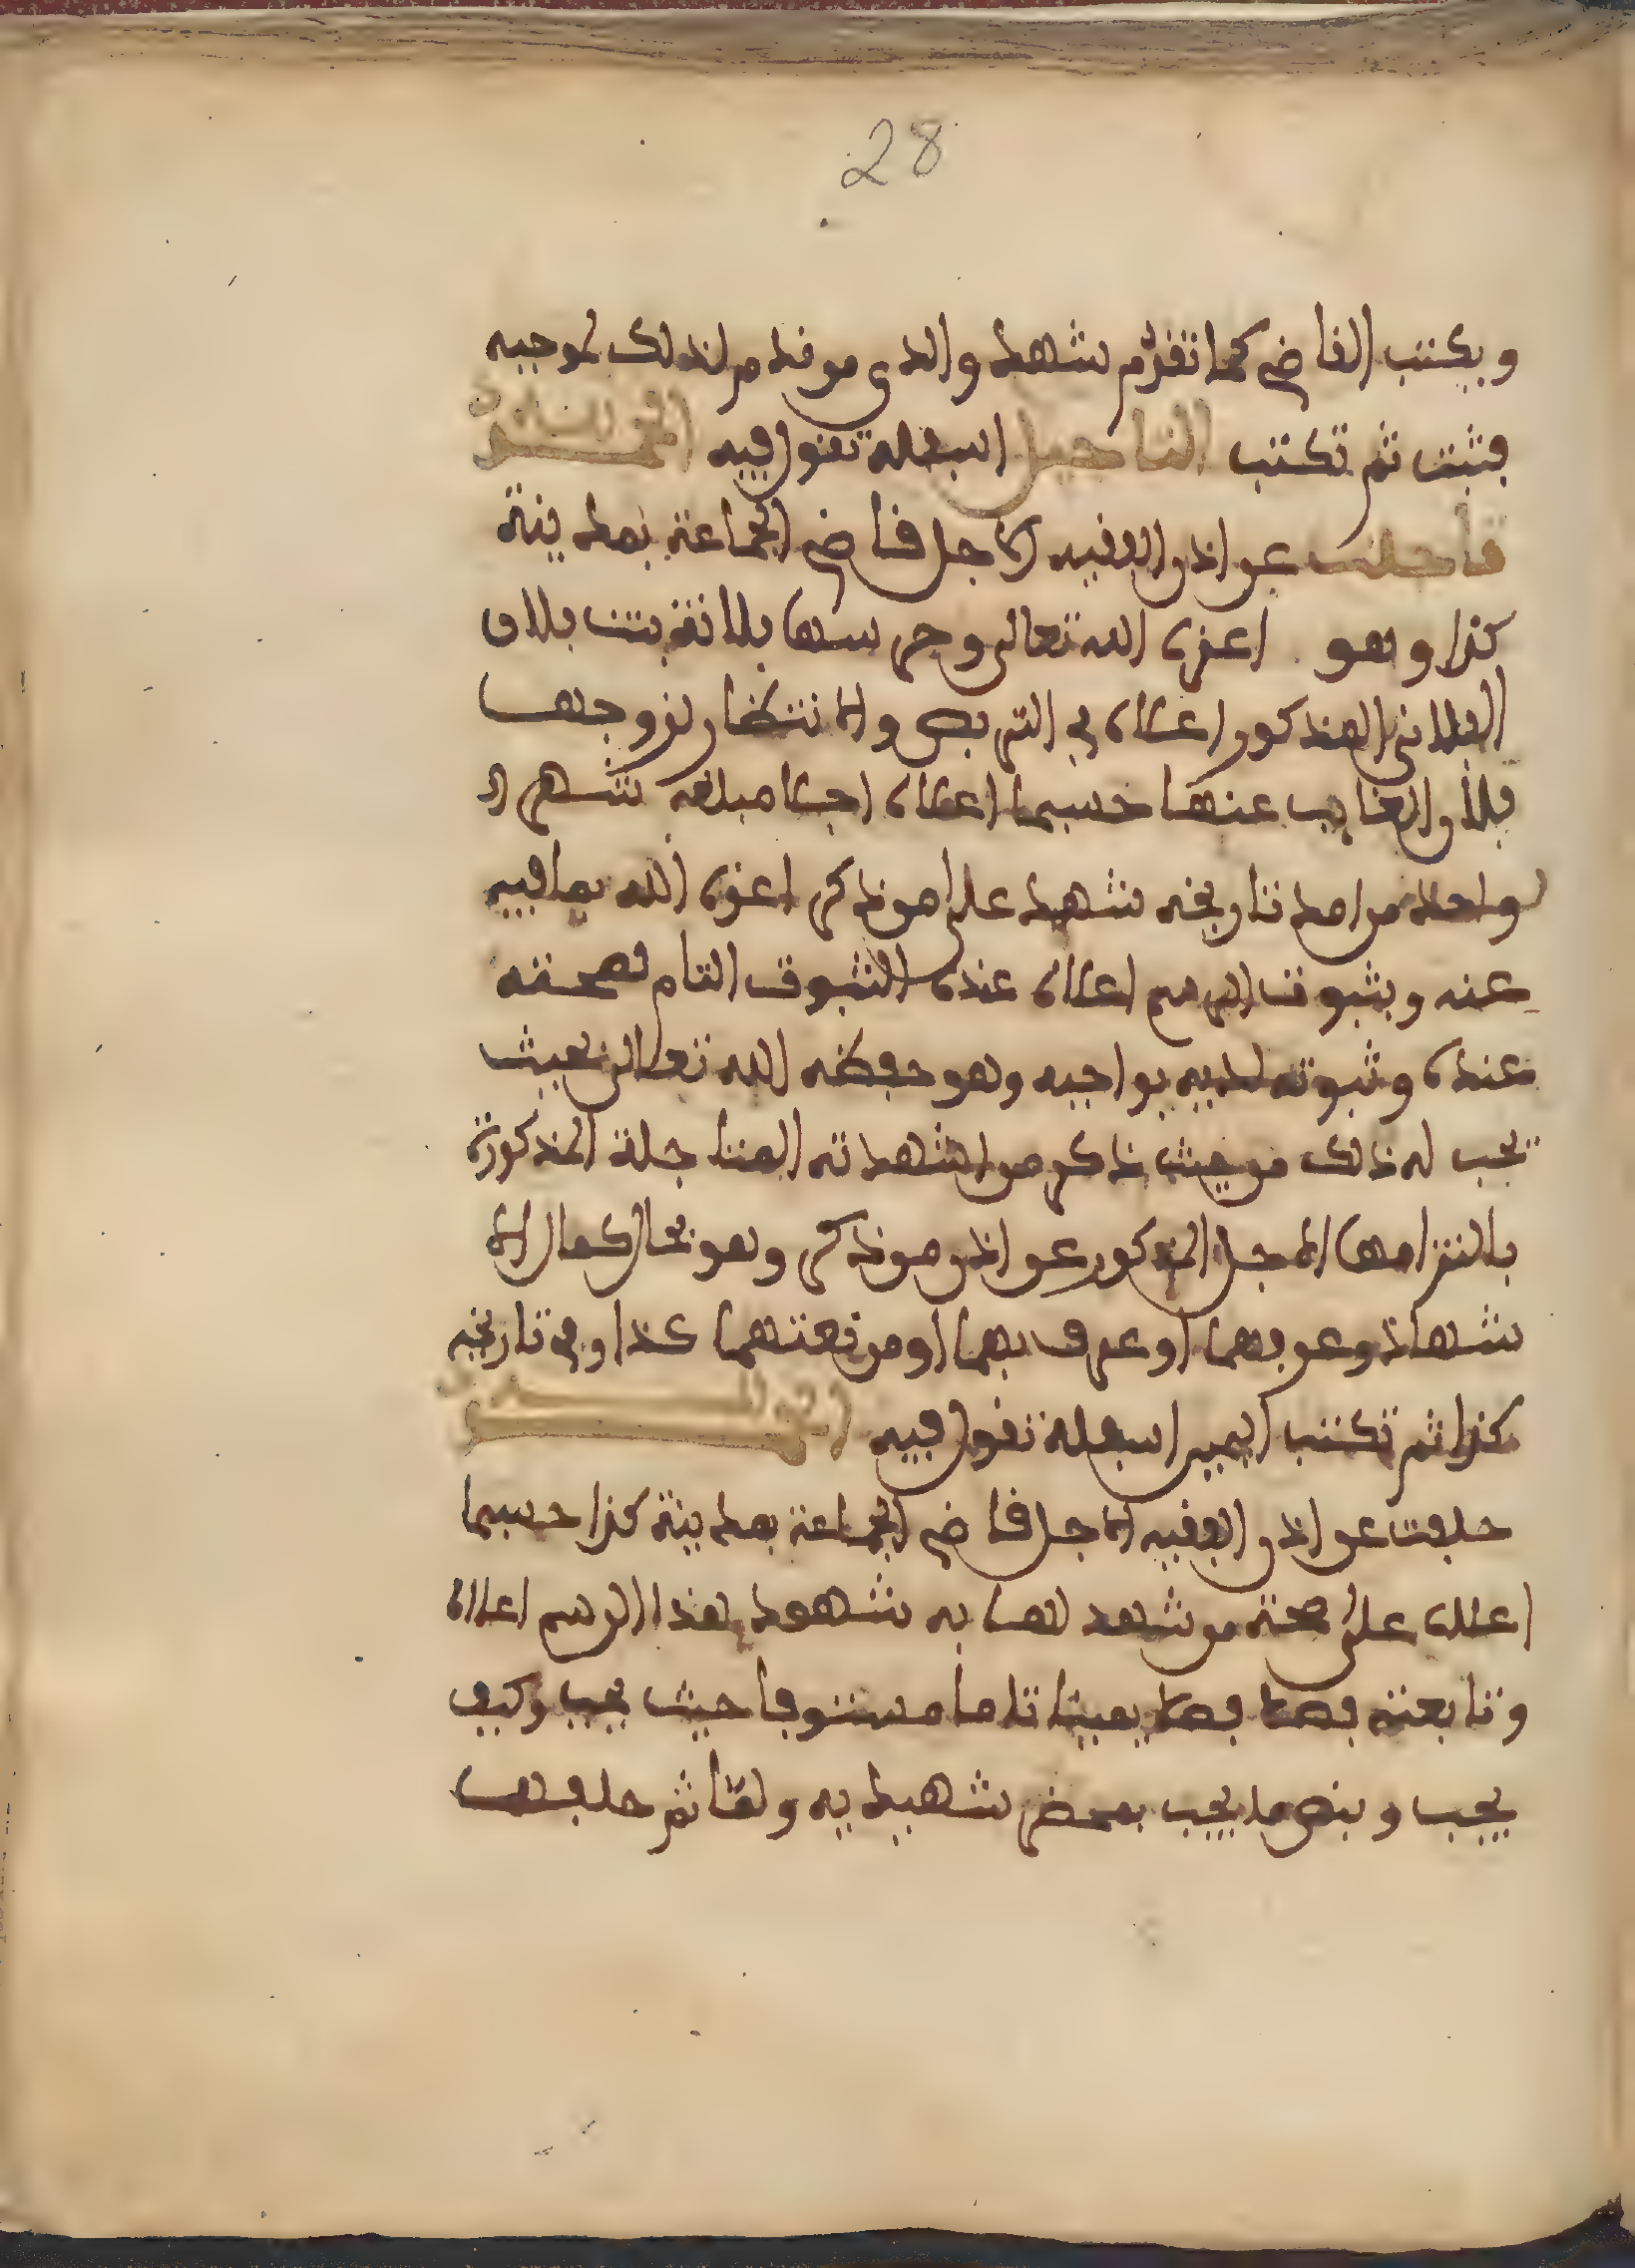 28
ويكتب القاضي كما تقدم شهد والذي من قدم لذلك لموجبه
فثبت ثم تكتب التاجيل اسفله تقول فيه الحمد لله
تاجلت عن اذن الفقيه الاجل قاضي الجماعة بمدينة
كذا وهو اعزه الله تعالى وحرسها فلانة بنت فلان
الفلاني المذكور اعلاه في التربص والانتظار لزوجها
فلان الغايب عنها حسبما اعلاه اجلا مبلغه شهرا
واحدا من امد تاريخه شهد على من ذكر اعزه الله بما فيه
عنه وبثبوت الرسم اعلاه عنده الثبوت التام لصحته
عنده وثبوته لديه بواجبه وهو حفظه الله تعالى بحيث
يجب له ذلك من حيث ذكر من اشهدته المتاجلة المذكورة
بالتزامها الاجل المذكور عن اذن من ذكر وهو بحال كمال الا
شهاد وعرفهما او عرف بهما او من نعتهما كذا وفي تاريخه
كذا ثم تكتب اليمين اسفله تقول فيه الحمد لله
حلفت عن اذن الفقيه الاجل قاضي الجماعة بمدينة كذا حسبما
اعلاه على صحة من شهد لها به شهود هذا الرسم اعلاه
وتابعته فصلا فصلا يمينا تاما مستوفا حيث يجب وكيف
يجب وبنص ما يجب بمحضر شهيديه ولقا ثم حلفها